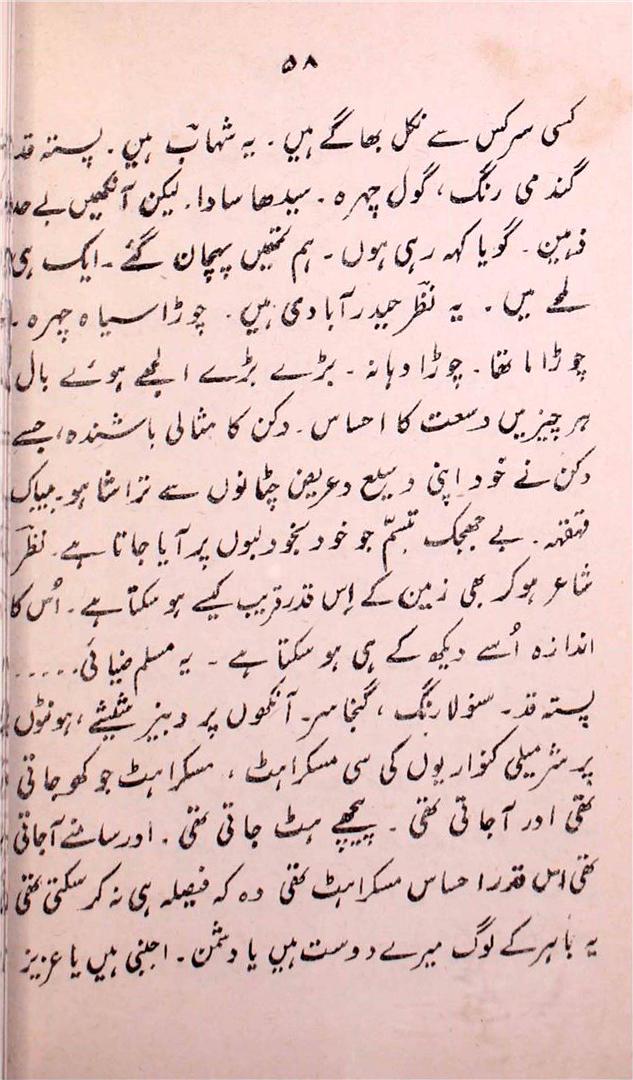 ۵۸
کسی سرکس سے نکل بھاگے ہیں۔ یہ شہابؔ ہیں۔ پستہ قد
گندمی رنگ، گول چہرہ۔ سیدھا سادا۔ لیکن آنکھیں بے حد
ذہین۔ گویا کہہ رہی ہوں۔ ہم تمھیں پہچان گئے۔ ایک ہی
لمحے میں۔ یہ نظرؔ حیدرآبادی ہیں۔ چوڑا سیاہ چہرہ۔
چوڑا ماتھا۔ چوڑا دہانہ۔ بڑے بڑے الجھے ہوئے بال
ہر چیز میں وسعت کا احساس۔ دکن کا مثالی باشندہ، جسے
دکن نے خود اپنی وسیع و عریض چٹانوں سے تراشا ہو۔ بیباک
قہقہہ۔ بے جھجک تبسّم جو خود بخود لبوں پر آیا جاتا ہے۔ نظرؔ
شاعر ہو کر بھی زمین کے اِس قدر قریب کیسے ہو سکتا ہے۔ اُس کا
اندازہ اُسے دیکھ کے ہی ہو سکتا ہے۔ یہ مسلم ضیائی.....
پستہ قد۔ سنولا رنگ، گنجا سر۔ آنکھوں پر دبیز شیشے، ہونٹوں
پر شرمیلی کنواریوں کی سی مسکراہٹ، مسکراہٹ جو کھو جاتی
تھی اور آجاتی تھی۔ پیچھے ہٹ جاتی تھی۔ اور سامنے آجاتی
تھی اس قدر احساس مسکراہٹ تھی وہ کہ فیصلہ ہی نہ کر سکتی تھی
یہ باہر کے لوگ میرے دوست ہیں یا دشمن۔ اجنبی ہیں یا عزیز